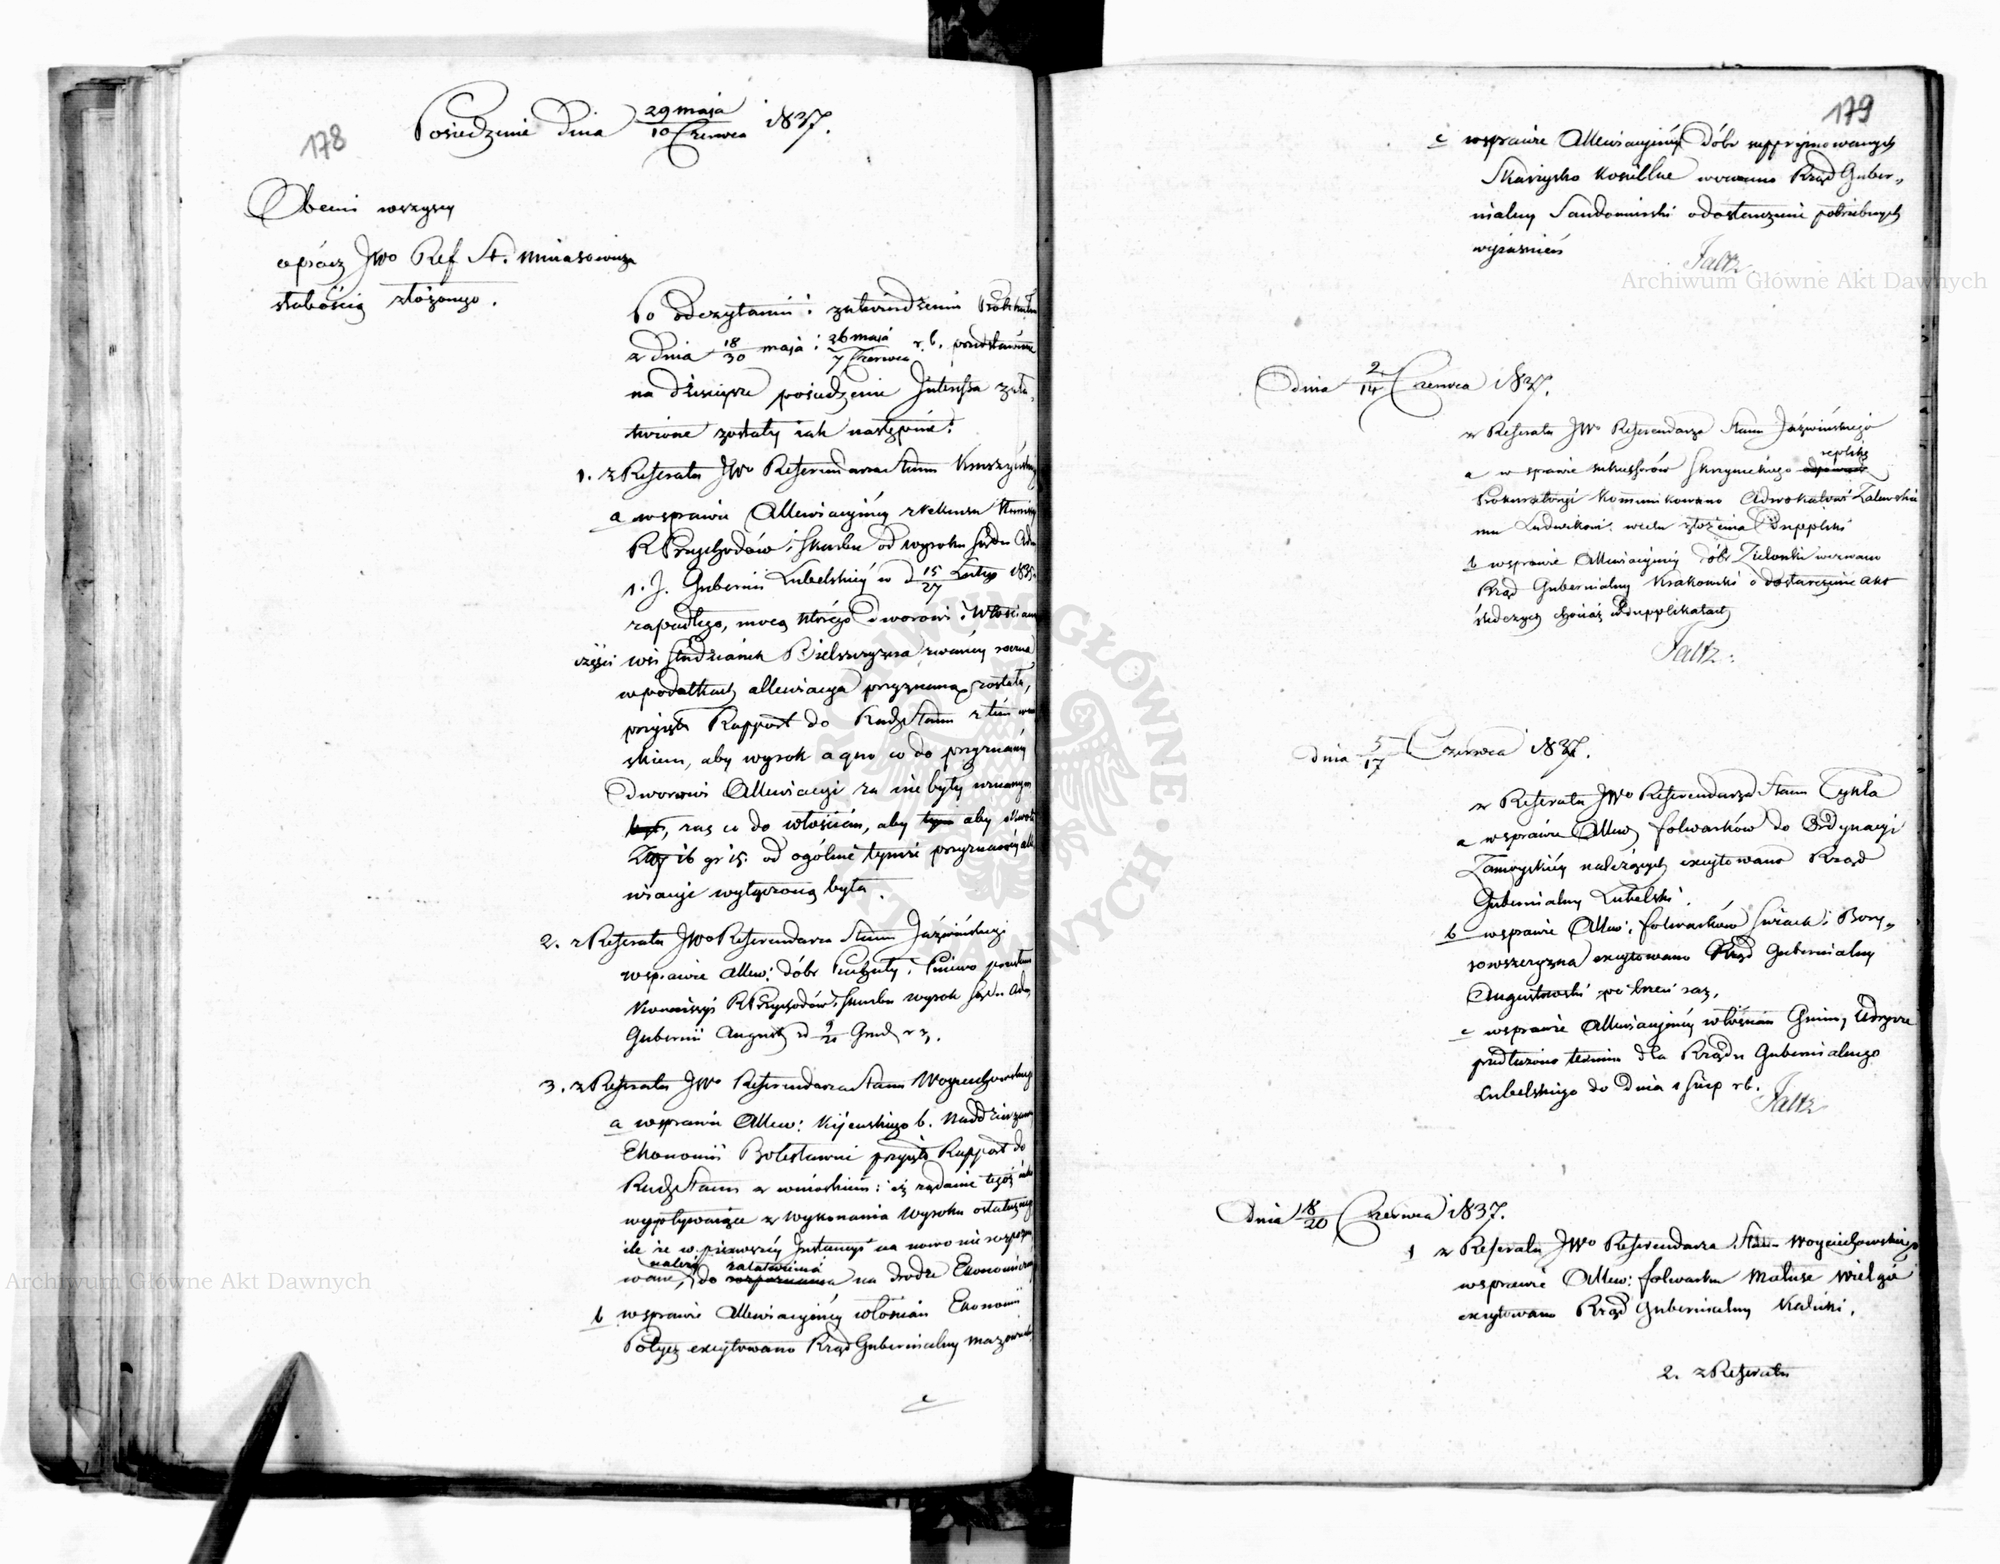 178
Posiedzenie dnia 29 maja / 10 Czerwca 1837.
Obecni wszyscy
oprócz JWo Ref St. Miniasowicza
słabością złożonego.
Po odczytaniu i zatwierdzeniu Protokułu
z dnia 18/30 maja i 26 maja / 7 Czerwca r. b. przedstawione
na dzisiejsze posiedzenie Interessa zała-
twione zostały jak następnie:
1. z Referatu JWo Referendarza Stanu
a w sprawie Allewiacyjnéj z rekursu Kommissyi
R Przychodów i Skarbu od wyroku Sądu Adm
1. J. Gubernii Lubelskiéj w d 15/27 Lutego
zapadłego, mocą którego Dworowi i Włościanom
części wsi Studzianek Bielszczyzna zwanéj
w podatkach allewiacya przyznaną została,
przyjęto Rapport do Rady Stanu z tém wnio
skiem, aby wyrok a quo co do przyznanéj
Dworowi Allewiacyi za nie były uznanym
był, zaś co do włościan, aby tym aby
Złp 16 gr 15. od ogólnie tymże przyznanéj alle
wiacyi wyłączoną była.
2. z Referatu JWo Referendarza Stanu Jaźwińskiego
w sprawie Allew: dóbr i Pniewo
Kommissyi R Przychodów i Skarbu wyrok Sądu Adm
Gubernii August d 9/21 Grud r z.
3. z Referatu JWo Referendarza Stanu Woyciechowskiego
a w sprawie Allew: Kijeńskiego b. Naddzierżawcy
Ekonomii Bolesławiec przyjęto Rapport do
Rady Stanu z wnioskiem: iż żądanie tegoż jako
wypływające z wykonania wyroku ostatecznego
ile że w pierwszéj Instancyi na nowo nie rozpozna
należy załatwienia
wane, do rozpoznania na drodze Ekonomicznéj
b w sprawie Allewiacyjnéj włościan Ekonomii
Potycz excytowano Rząd Gubernialny Mazowiecki
c
179
c w sprawie Allewiacyjnéj dóbr supprymowanych
Skarżysko Kościelne wezwano Rząd Guber-
nialny Sandomirski o dostarczenie potrzebnych
wyjaśnień
Faltz
Dnia 2/14 Czerwca 1837.
z Referatu JWo Referendarza Stanu Jaźwińskiego
replikę
a w sprawie sukcessorów Skrzyneckiego odpowiedź
Prokuratoryi kommunikowano Adwokatowi Zalewskie
mu Ludwikowi, w celu złożenia Dupliki
b w sprawie Allewiacyjnéj dóbr Zielonki wezwano
Rząd Gubernialny Krakowski o dostarczenie akt
śledczych chociaż w dupplikatach
Faltz.
dnia 5/17 Czerwca 1837.
z Referatu JWo Referendarza Stanu Cykla
a w sprawie Allew, folwarków do Ordynacyi
Zamoyskiéj należących excytowano Rząd
Gubernialny Lubelski.
b w sprawie Allew: folwarków i Bory-
sowszczyzna excytowano Rząd Gubernialny
Augustowski po trzeci raz,
c w sprawie Allewiacyjnéj włościan Gminy Udrycze
przedłużono termin dla Rządu Gubernialnego
Lubelskiego do dnia 1 Sierp r b.
Faltz
Dnia 18/20 Czerwca 1837.
1 z Referatu JWo Referendarza Stanu Woyciechowskiego
w sprawie Allew: folwarku Małusze Wielgie
excytowano Rząd Gubernialny Kaliski.
2. z Referatu
Archiwum Główne Akt Dawnych
Archiwum Główne Akt Dawnych
ARCHIWUM GŁÓWNE AKT DAWNYCH